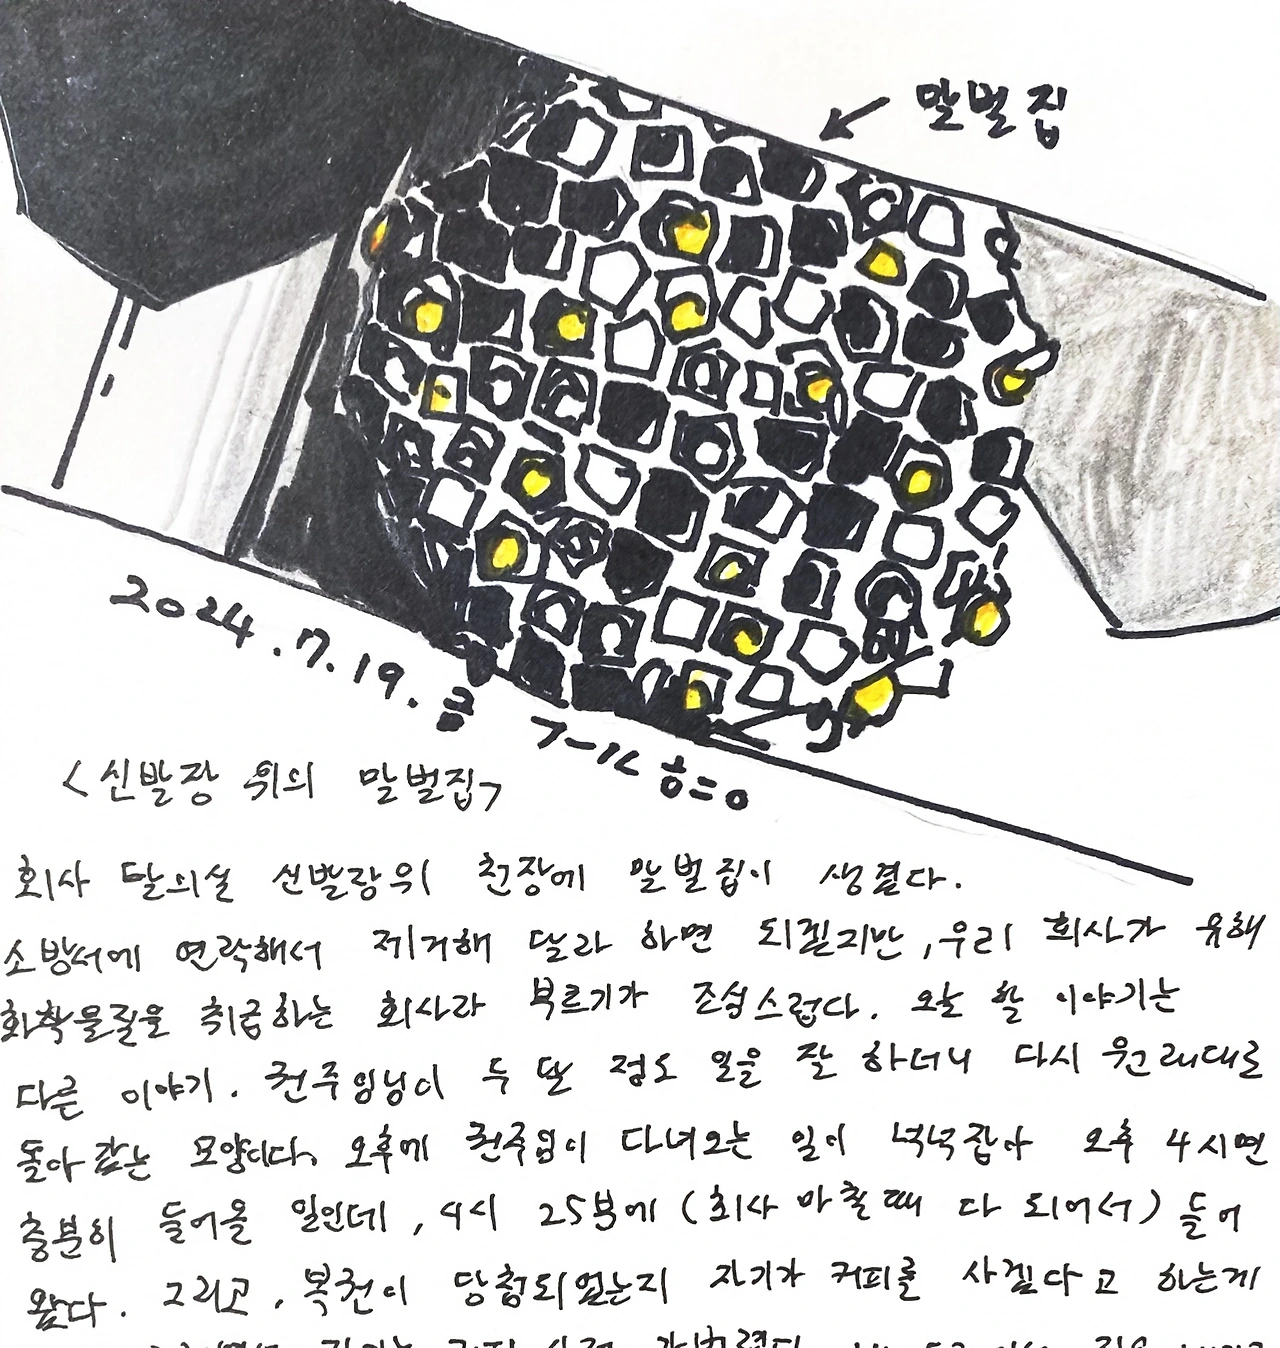 말벌집
2024.7.19.금
<신발장 위의 말벌집>
회사 탈의실 신발장위 천장에 말벌집이 생겼다.
소방서에 연락해서 제거해 달라 하면 되겠지만, 우리 회사가 유해
화학물질을 취급하는 회사라 부르기가 조심스럽다. 오늘 할 이야기는
다른 이야기. 권주임님이 두 달 정도 일을 잘 하더니 다시 원래대로
돌아 갔는 모양이다. 오후에 권주임이 다녀오는 일이 넉넉잡아 오후 4시면
충분히 들어올 일인데, 4시 25분에 (회사 마칠때 다 되어서) 들어
왔다. 그리고, 복권이 당첨되었는지 자기가 커피를 사겠다고 하는게